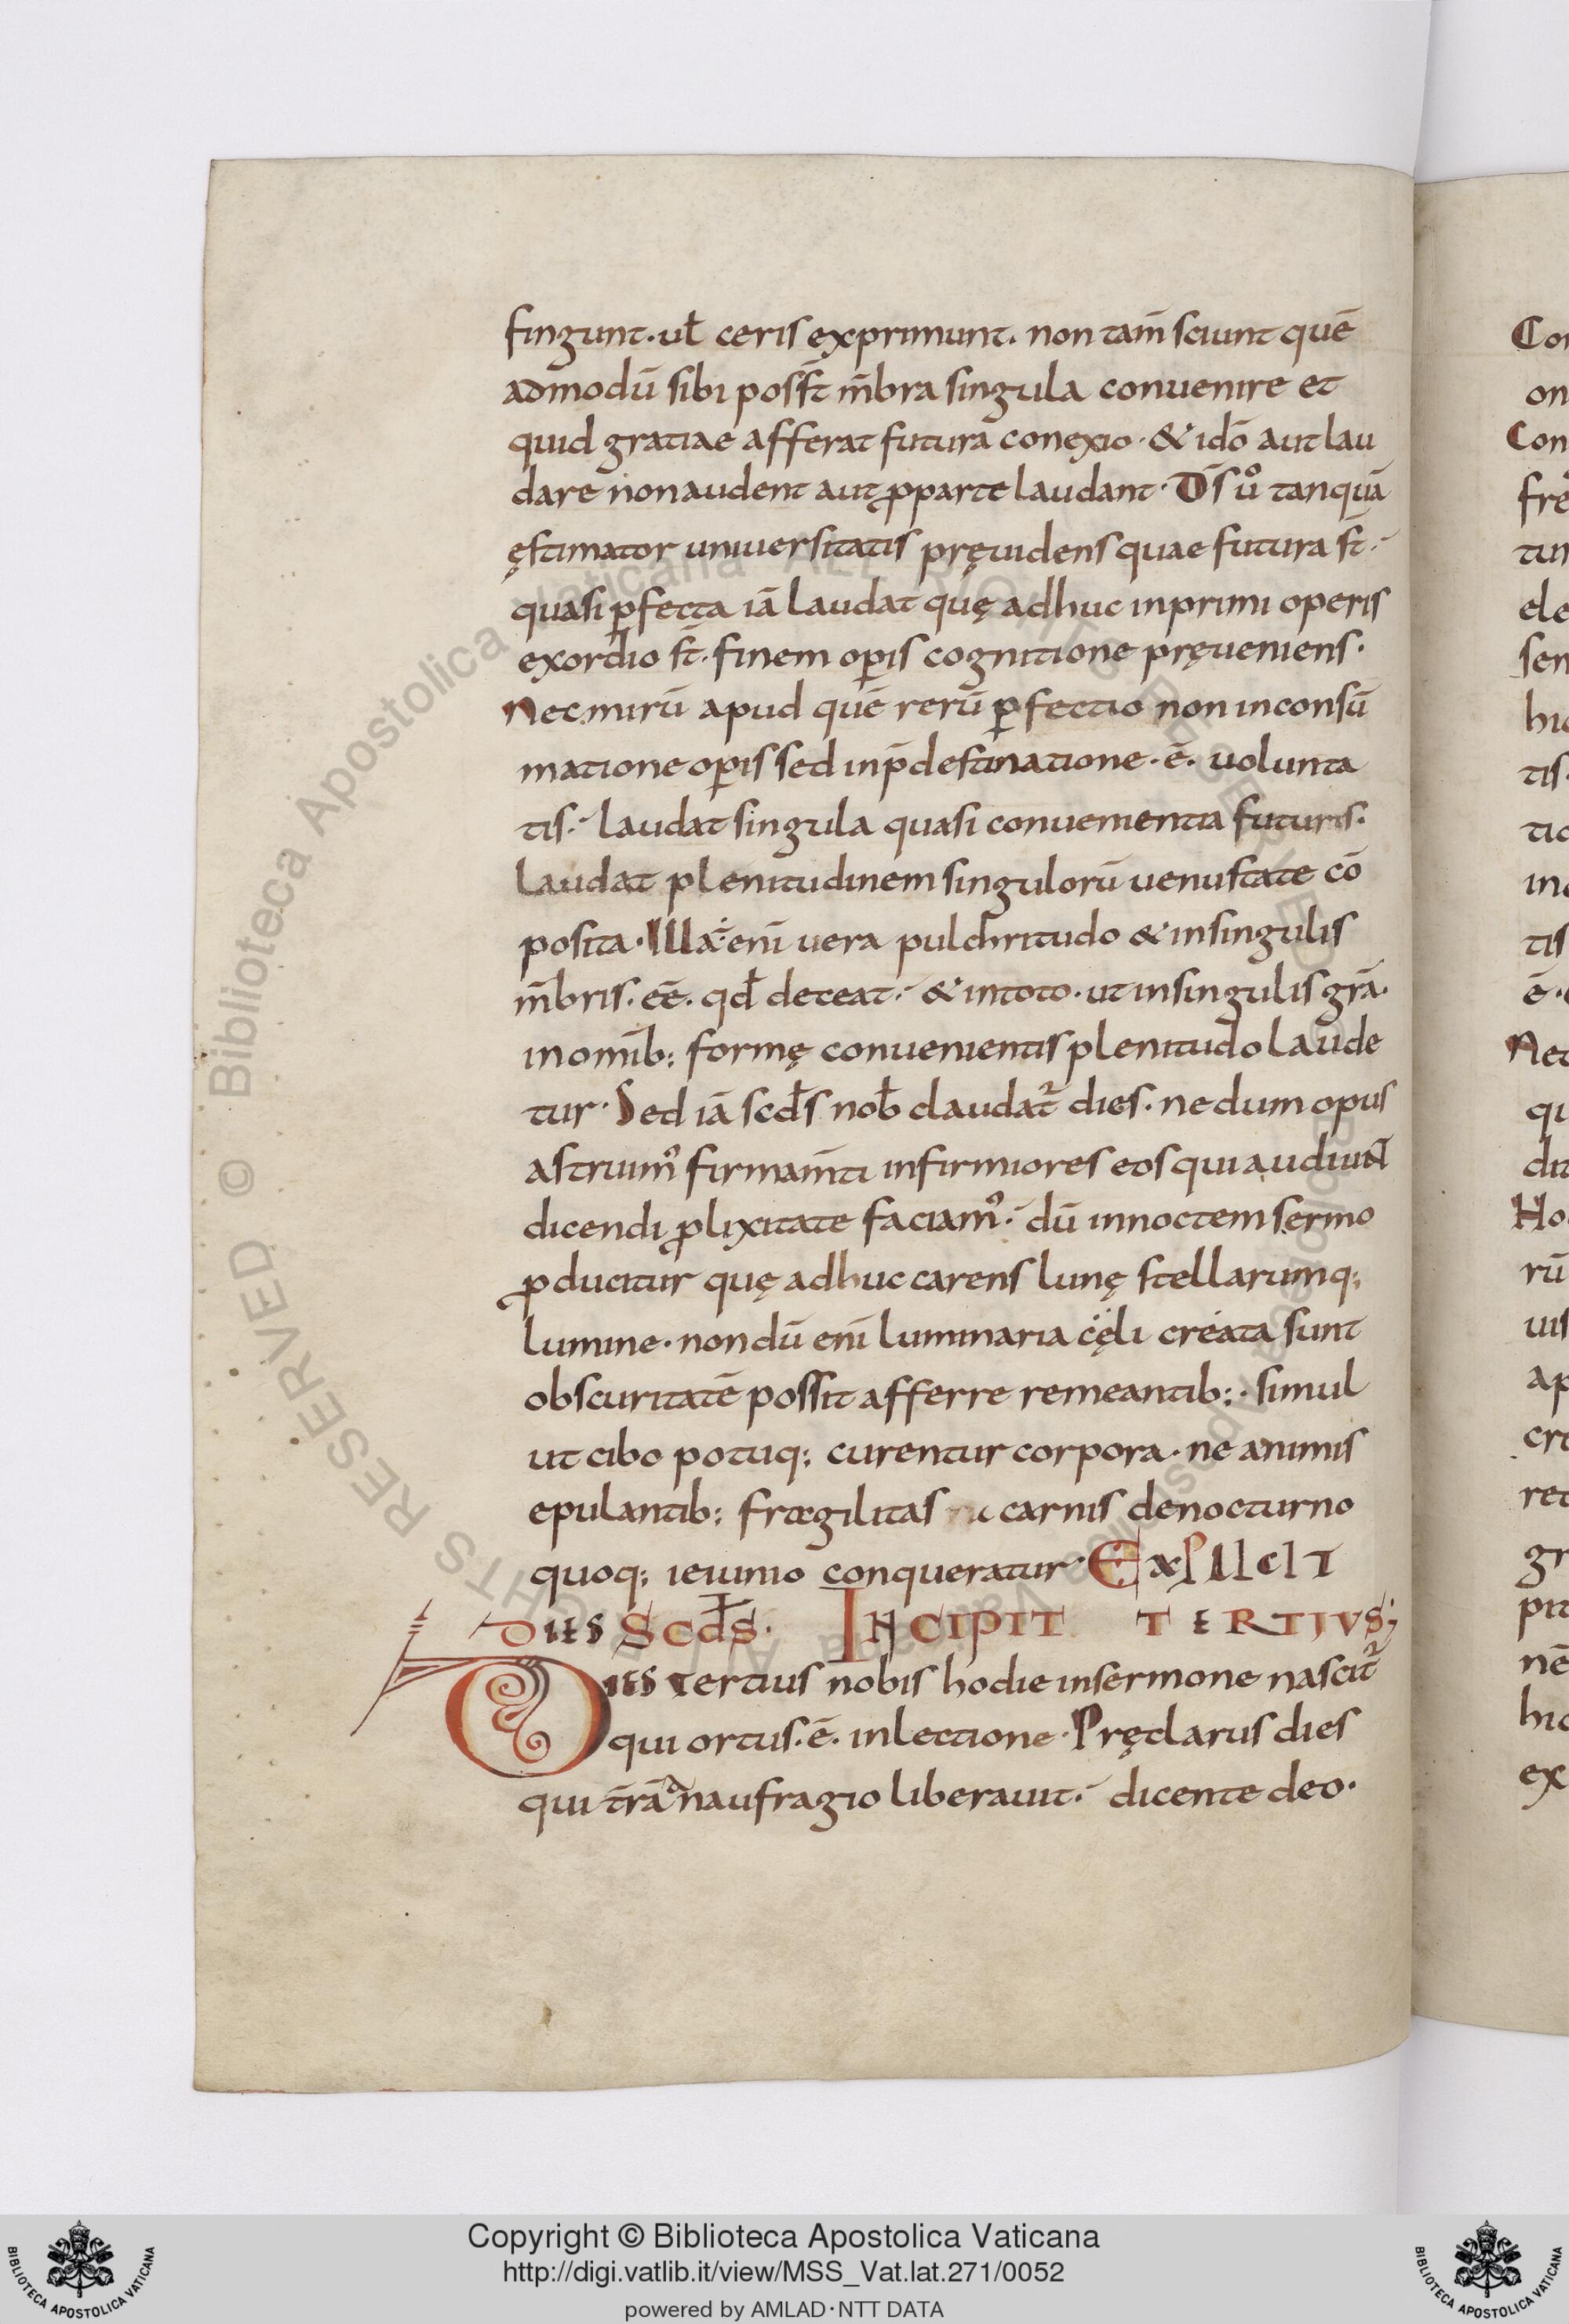 fingunt· ul̄ ceris exprimunt· non tam̄ sciunt quē
admodū sibi posst̄ m̄bra singula convenire et
quid gratiae afferat futura conexio· & idō aut lau
dare non audent aut ꝓparte laudant· Ds̄ ůo tanquā
ęstimator universitatis pręvidens quae futura st̄·
quasi ꝑfecta iā laudat quę adhuc inprimi operis
exordio st̄· finem oꝑis cognitione pręveniens·
Nec mirū apud quē rerū ꝑfectio non inconsū
matione oꝑis sed inp̄destinatione· ē· volunta
tis· laudat singula quasi convenientia futuris·
laudat plenitudinem singulorū venustate cō
posita· Illa eni̅ vera pulchritudo & insingulis
m̄bris· eē· qd̄ deceat· & intoto· ut insingulis grā·
in omīb; formę convenientis plenitudo laude
tur· Sed iā scd̄s nob̄ claudat᷑ dies· nedum opus
astruim᷒ firmam̄ti infirmiores eos qui audiunt
dicendi ꝓlixitate faciam᷒· dū innoctem sermo
ꝓducitur quę adhuc carens lunę stellarumq;
lumine· nondū eni̅ luminaria cęli creata sunt
obscuritatē possit afferre remeantib;· simul
ut cibo potuq; curentur corpora· ne animis
epulantib; fragilitas carnis denocturno
quoq; ieiunio conqueratur· EXPLICIT
DIES SCD̄S· INCIPIT TERTIUS;
DIES tertius nobis hodie insermone nascit᷑
qui ortus· ē· inlectione· Pręclarus dies
qui tr̄ā a naufragio liberavit· dicente deo·
Con
on
Con
fre
tun
ele
sen
hic
tis·
tio
ind
tis
ē·
Nec
qu
dit
Ho
rū
uis
ap
cre
ret
gr
pit
nē
hic
ex
© Biblioteca Apostolica Vaticana ALL RIGHTS RESERVED
Copyright © Biblioteca Apostolica Vaticana
http://digi.vatlib.it/view/MSS_Vat.lat.271/0052
powered by AMLAD·NTT DATA
BIBLIOTECA APOSTOLICA VATICANA
BIBLIOTECA APOSTOLICA VATICANA